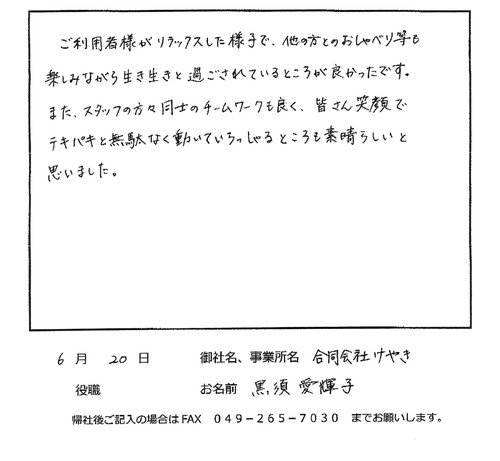 ご利用者様がリラックスした様子で、他の方とのおしゃべり等も
楽しみながら生き生きと過ごされているところが良かったです。
また、スタッフの方々同士のチームワークも良く、皆さん笑顔で
テキパキと無駄なく動いていらっしゃるところも素晴らしいと
思いました。
6 月 20 日 御社名、事業所名 合同会社けやき
役職 お名前 黒須 愛輝子
帰社後ご記入の場合は FAX 049-265-7030 までお願いします。